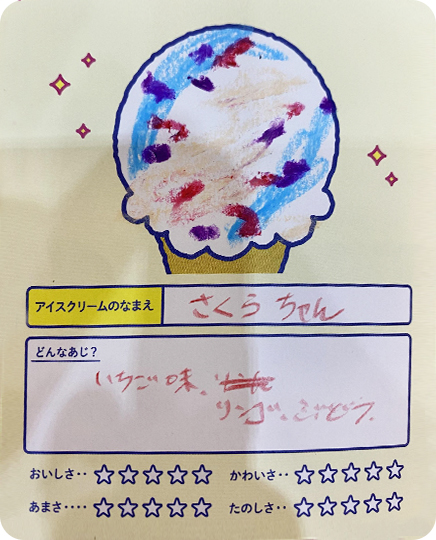 アイスクリームのなまえ
さくらちゃん
どんなあじ？
いちご味、
リンゴ、ぶどう、
おいしさ‥ ☆☆☆☆☆ かわいさ‥ ☆☆☆☆☆
あまさ‥‥ ☆☆☆☆☆ たのしさ‥ ☆☆☆☆☆